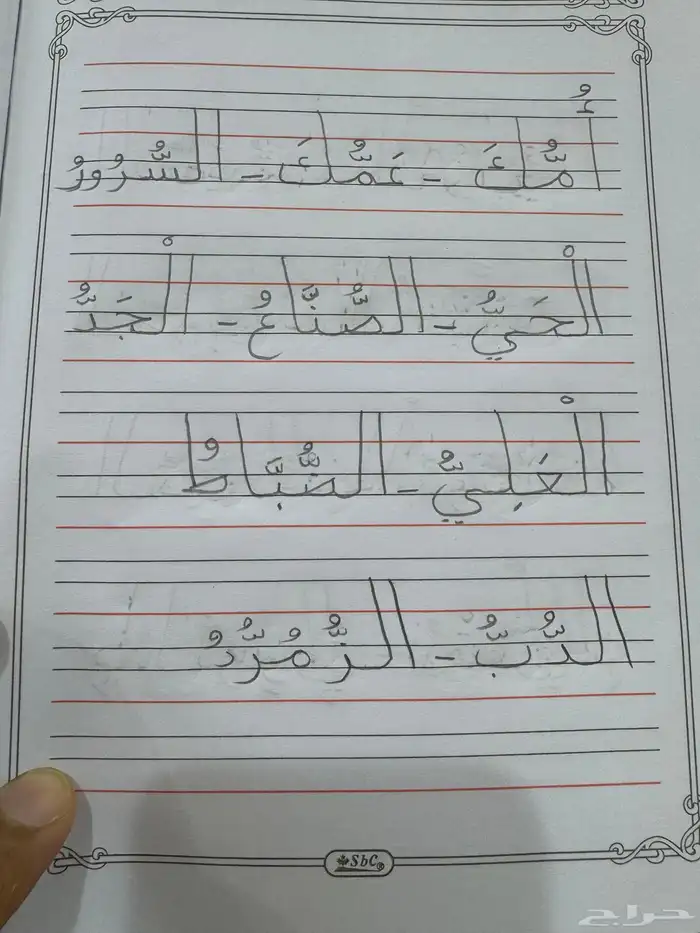 أُمُّكَ - عَمُّكَ - السُّرُورُ
الْحَيُّ - الصُّنَّاعُ - الْجَدُّ
الْعَلِيُّ - الضُّبَّاطُ
الدُّبُّ - الزُّمُرُّدُ
SbC
حراج